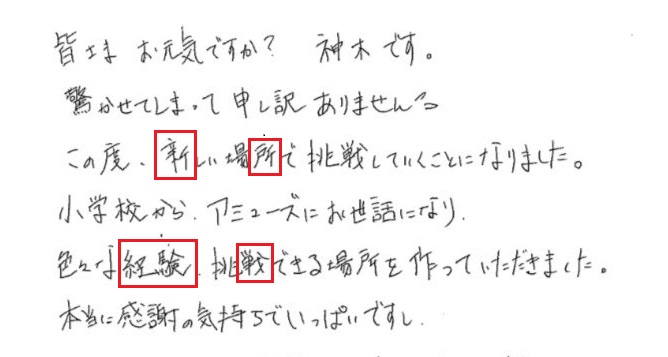 皆さま お元気ですか？ 神木です。
驚かせてしまって申し訳ありません
この度、新しい場所で挑戦していくことになりました。
小学校から、アミューズにお世話になり、
色々な経験、挑戦できる場所を作っていただきました。
本当に感謝の気持ちでいっぱいですし、